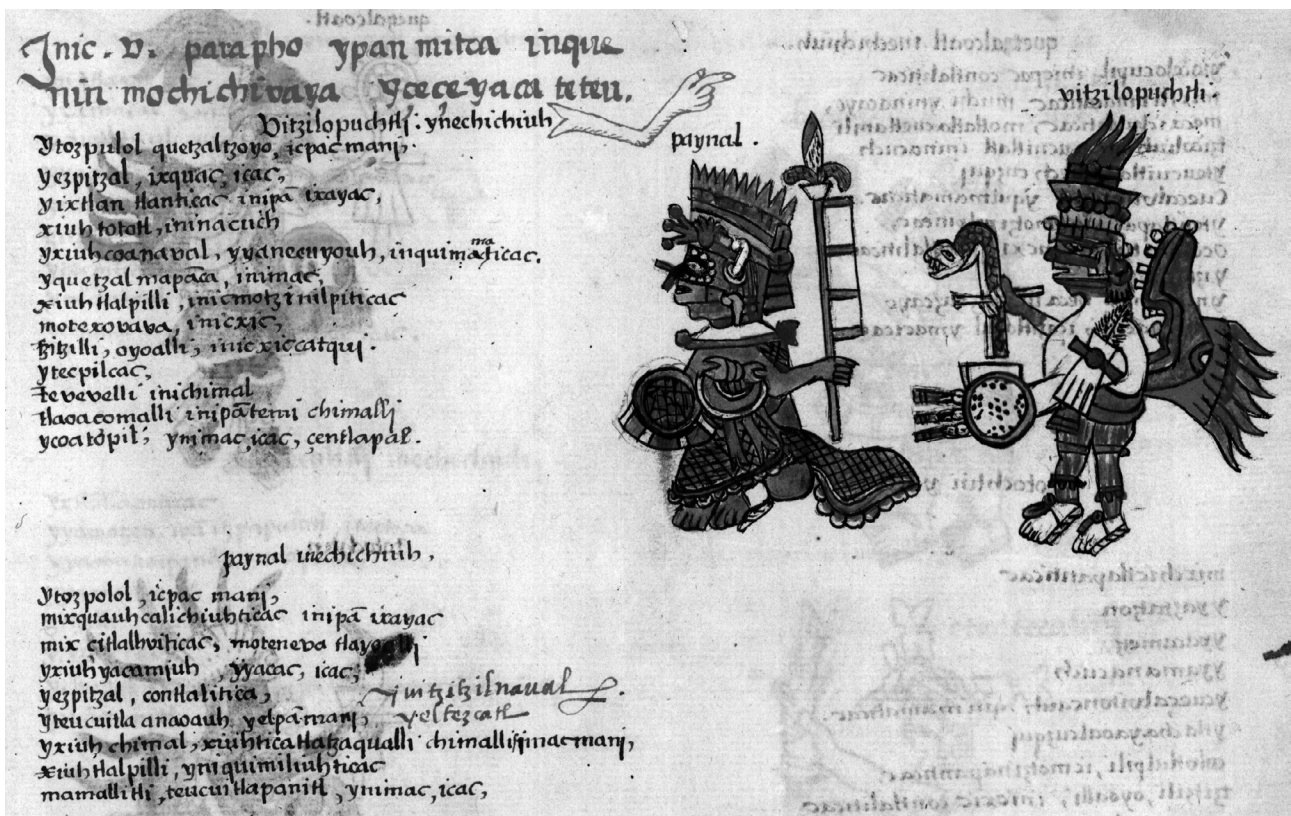 Inic. v. parapho ypan mitca inque
nin mochichivaya yceceyaca teteu.
Vitzilopuchtlj: ynechichiuh
ytozpulol quetzaltzoyo, icpac manj,
yezpitzal, ixquac, icac,
yixtlan tlanticac inipā ixayac,
xiuhtototl, ininacuch
yxiuhcoanaval, yyanecuyouh, inquimamaticac.
yquetzalmapāca, inimac,
xiuhtlalpilli, inic motzinilpiticac
motexovava, inicxic,
tzitzilli, oyoalli, inicxic catqui.
ytecpilcac,
tevevelli inichimal
tlaoacomalli inipā temi chimallj
ycoatopil, ynimac, icac, centlapal.
paynal.
vitzilopuchtli.
paynal inechichiuh,
ytozpolol, icpac manj,
mixquauhcalichiuhticac inipā ixayac
mix citlalhviticac, moteneva tlayoallj
yxiuhyacamjuh, yyacac, icac,
yezpitzal, contlalitica, jvitzitzilnaval.
yteucuitla anaoauh yelpā manj, yeltezcatl
yxiuh chimal, xiuhtica tlatzaqualli chimallj imac manj,
xiuhtlalpilli, yniquimiliuhticac
mamallitli, teucuitlapanitl, ynimac, icac,